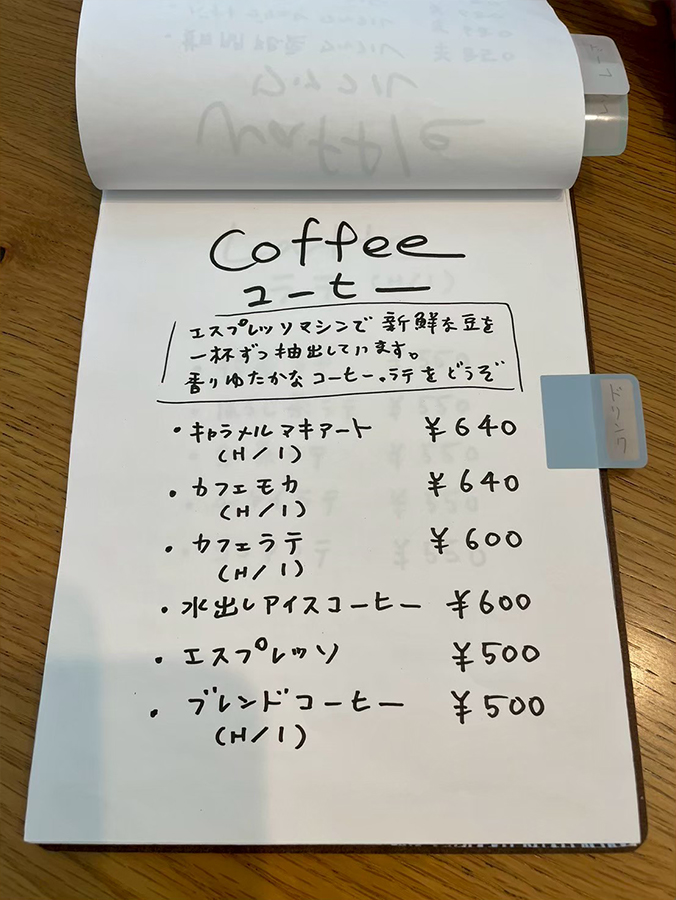 Coffee
コーヒー
エスプレッソマシンで 新鮮な豆を
一杯ずつ抽出しています。
香りゆたかな コーヒー、ラテを どうぞ
・キャラメルマキアート ¥640
(H/I)
・カフェモカ ¥640
(H/I)
・カフェラテ ¥600
(H/I)
・水出しアイスコーヒー ¥600
・エスプレッソ ¥500
・ブレンドコーヒー ¥500
(H/I)
ドリンク